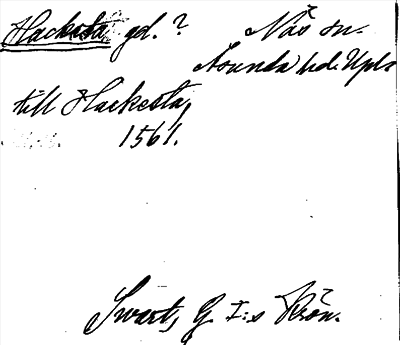 Hacksta gd. ? Näs sn.
Åsunda hd. Upl.
till Hacksta,
1561.
Swart, G. I:s Krön.